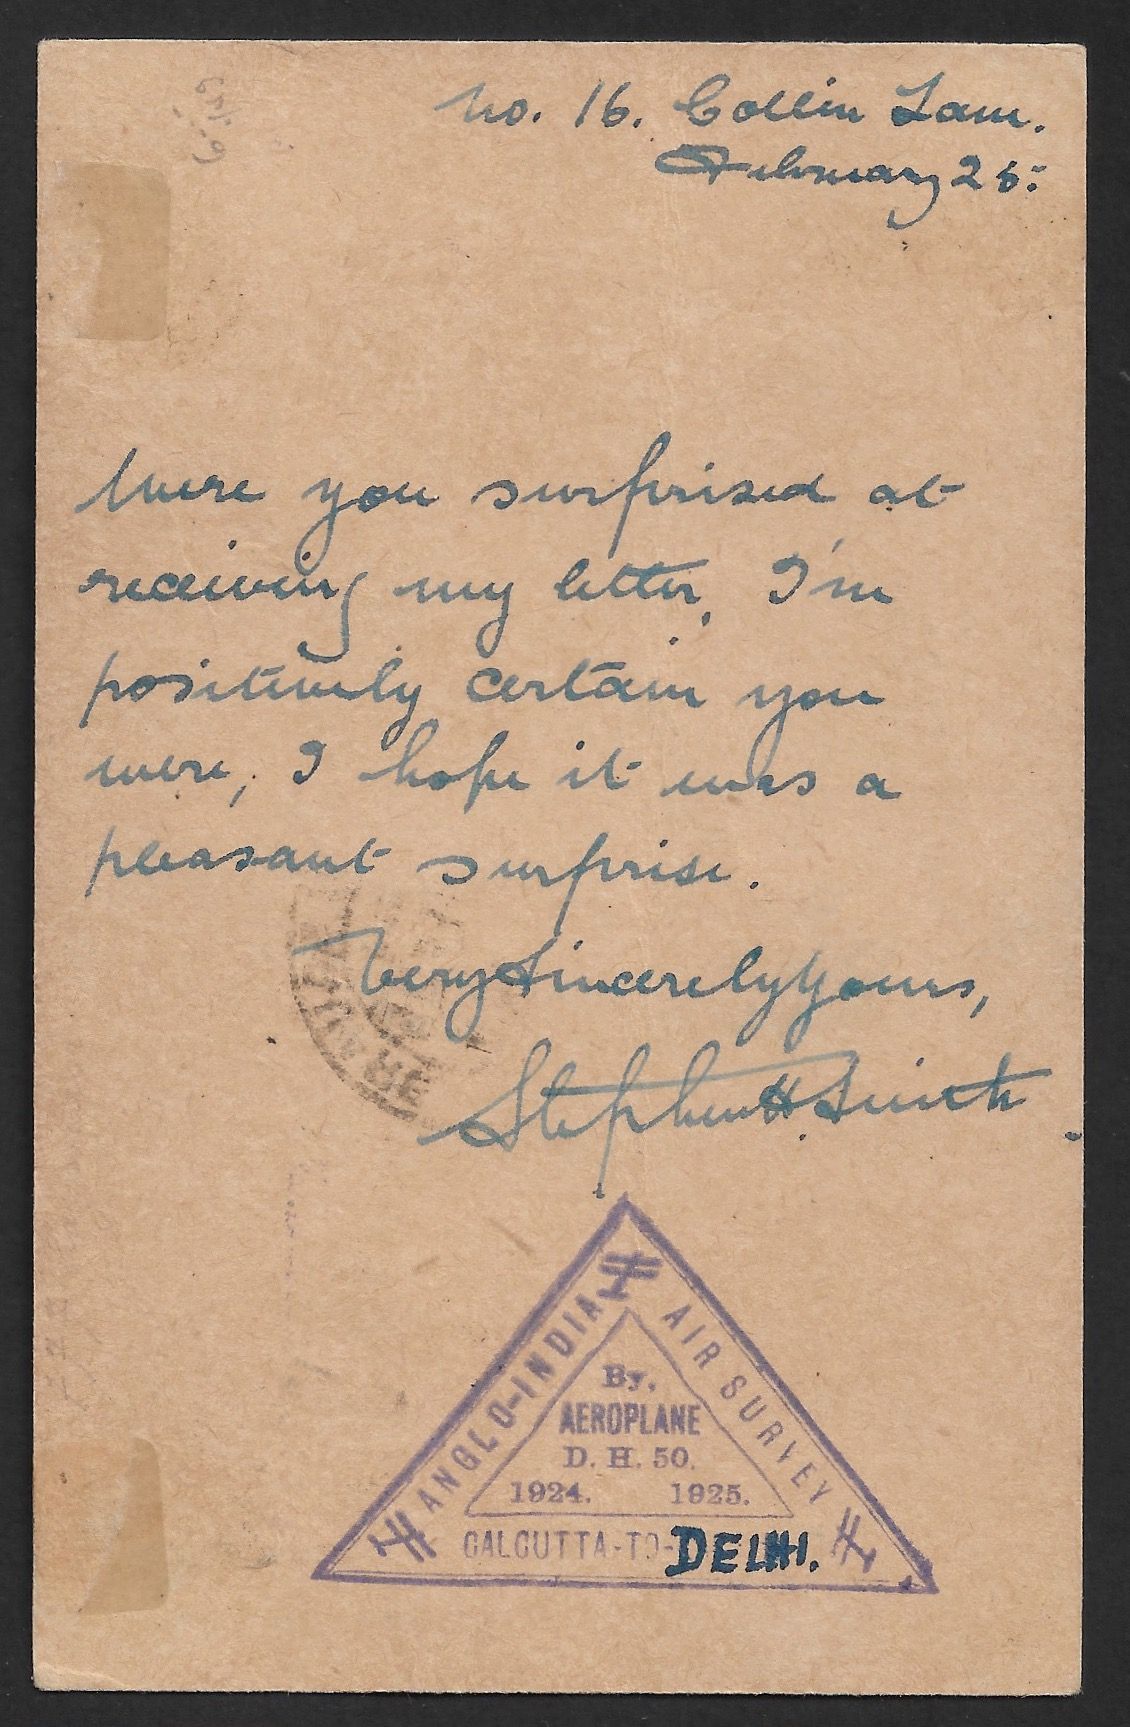 No. 16. Collin Lane.
February 25:
Were you surprised at
receiving my letter, I'm
positively certain you
were, I hope it was a
pleasant surprise.
Very Sincerely Yours,
Stephen H Smith
ANGLO-INDIA AIR SURVEY
By.
AEROPLANE
D. H. 50.
1924. 1925.
CALCUTTA-TO-DELHI.